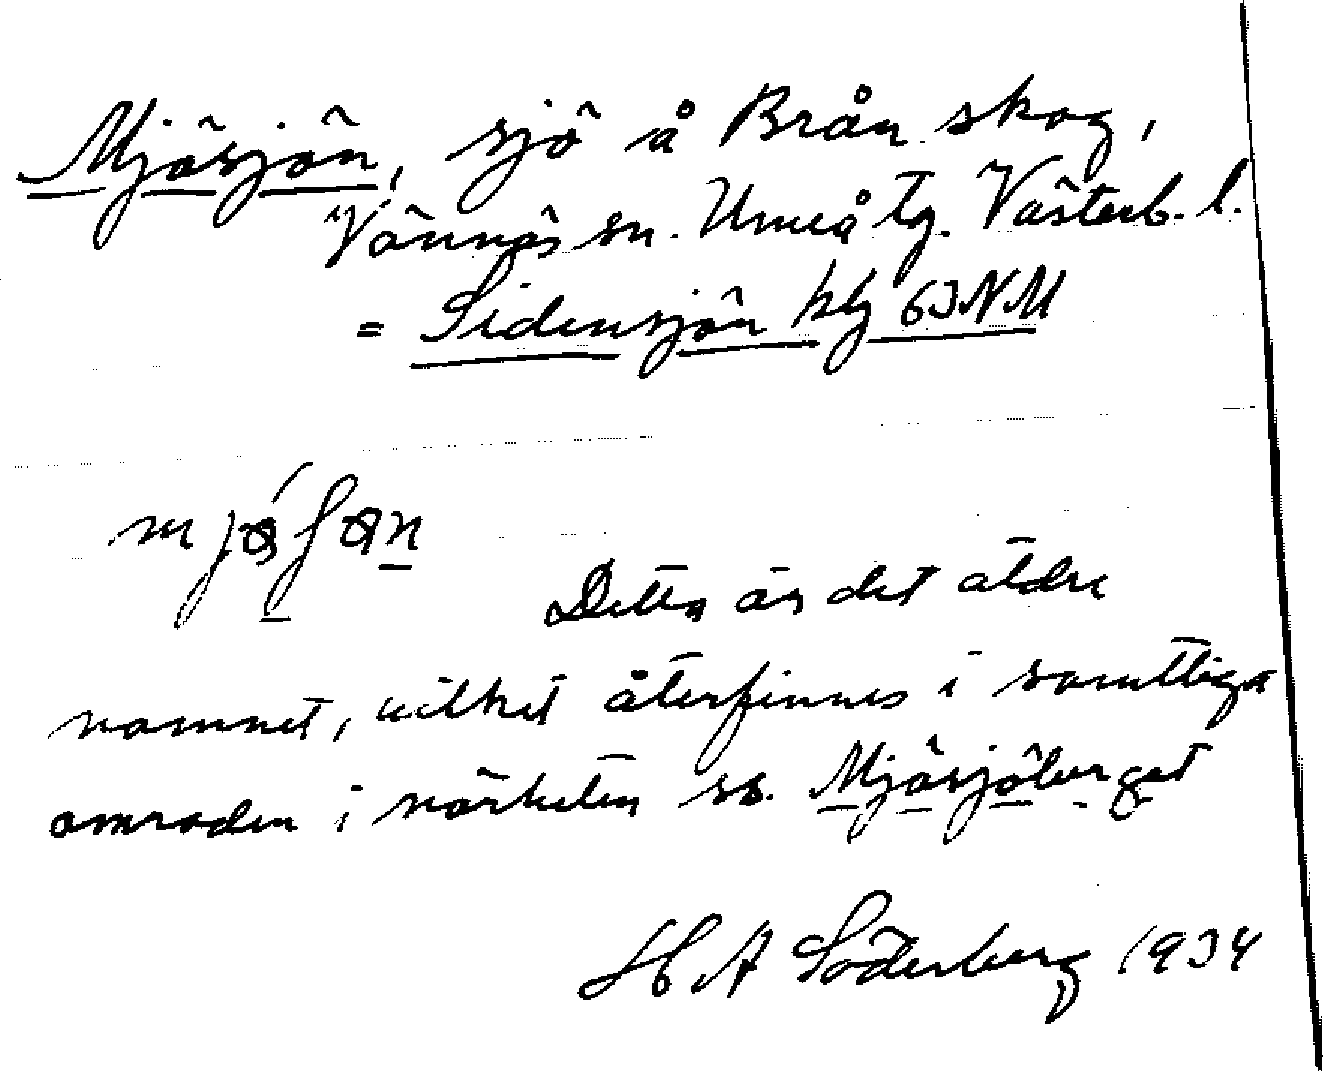 Mjösjön, sjö å Brån skog,
Vännäs sn. Umeå tg. Västerb. l.
= Sidensjön kbl 63 NM
Detta är det äldre
namnet, vilket återfinnes i samtliga
områden i närheten ss. Mjösjöberget
H A Söderberg 1934